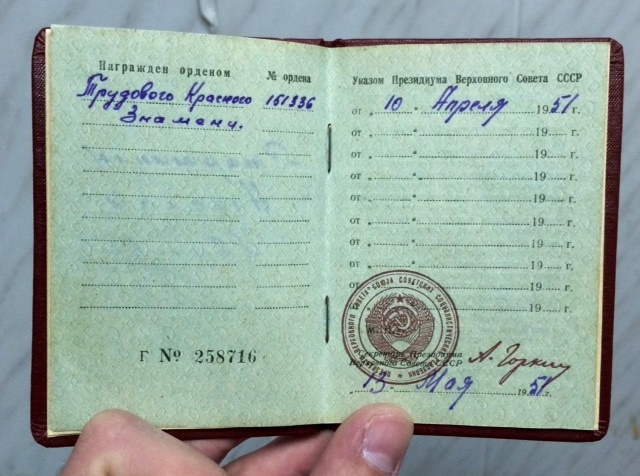 Награжден орденом
№ ордена
Трудового Красного 151336
Знамени.
Г № 258716
Указом Президиума Верховного Совета СССР
от „ 10 “ Апреля 1951 г.
от „ “ 19 г.
от „ “ 19 г.
от „ “ 19 г.
от „ “ 19 г.
от „ “ 19 г.
от „ “ 19 г.
от „ “ 19 г.
от „ “ 19 г.
от „ “ 19 г.
Секретарь Президиума
Верховного Совета СССР
А. Горкин
„ 15 “ Мая 1951 г.